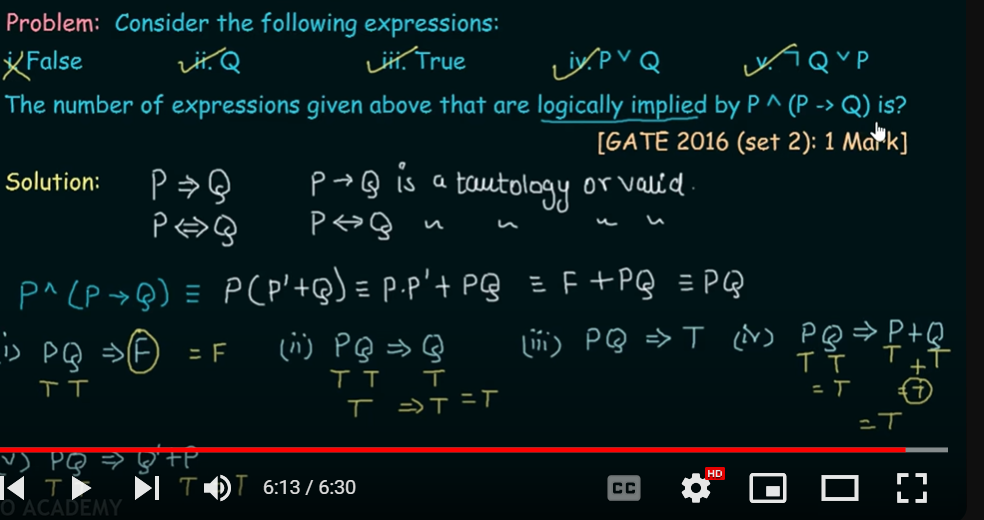 Problem: Consider the following expressions:
i. False ii. Q iii. True iv. P ∨ Q v. ¬ Q ∨ P
The number of expressions given above that are logically implied by P ^ (P -> Q) is?
[GATE 2016 (set 2): 1 Mark]
Solution: P ⇒ Q P → Q is a tautology or valid.
P ⇔ Q P ↔ Q " " " "
P ^ (P → Q) ≡ P(P'+Q) ≡ P.P' + PQ ≡ F + PQ ≡ PQ
i) PQ ⇒ F = F (ii) PQ ⇒ Q (iii) PQ ⇒ T (iv) PQ ⇒ P+Q
T T T T T T T T + T
T ⇒ T = T = T = T
= T
v) PQ ⇒ Q'+P
T T T
6:13 / 6:30 CC HD
O ACADEMY